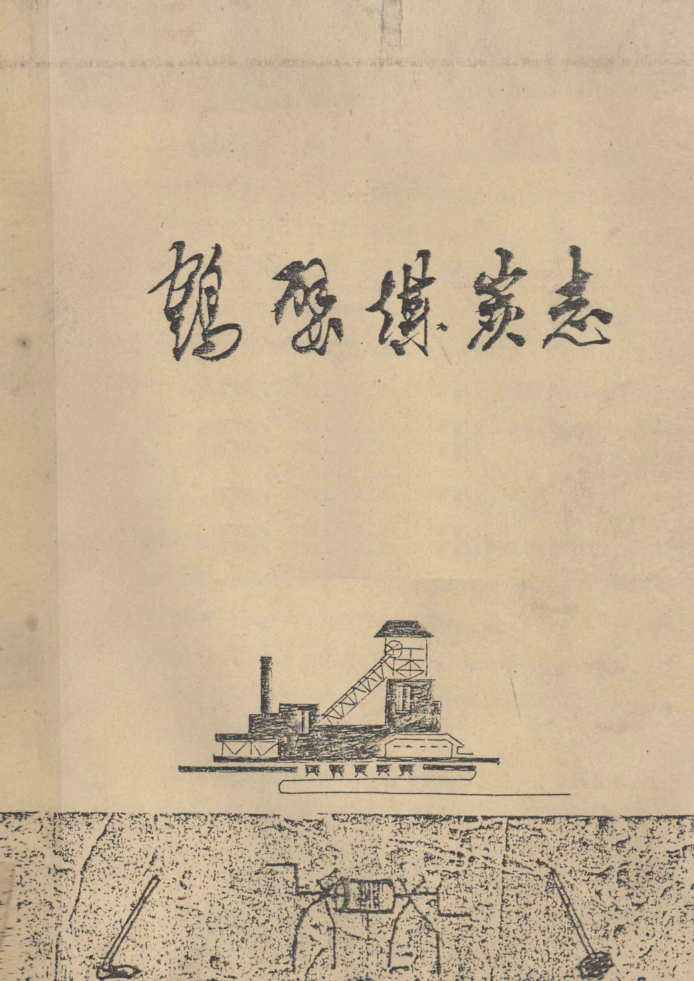 鹤壁煤炭志